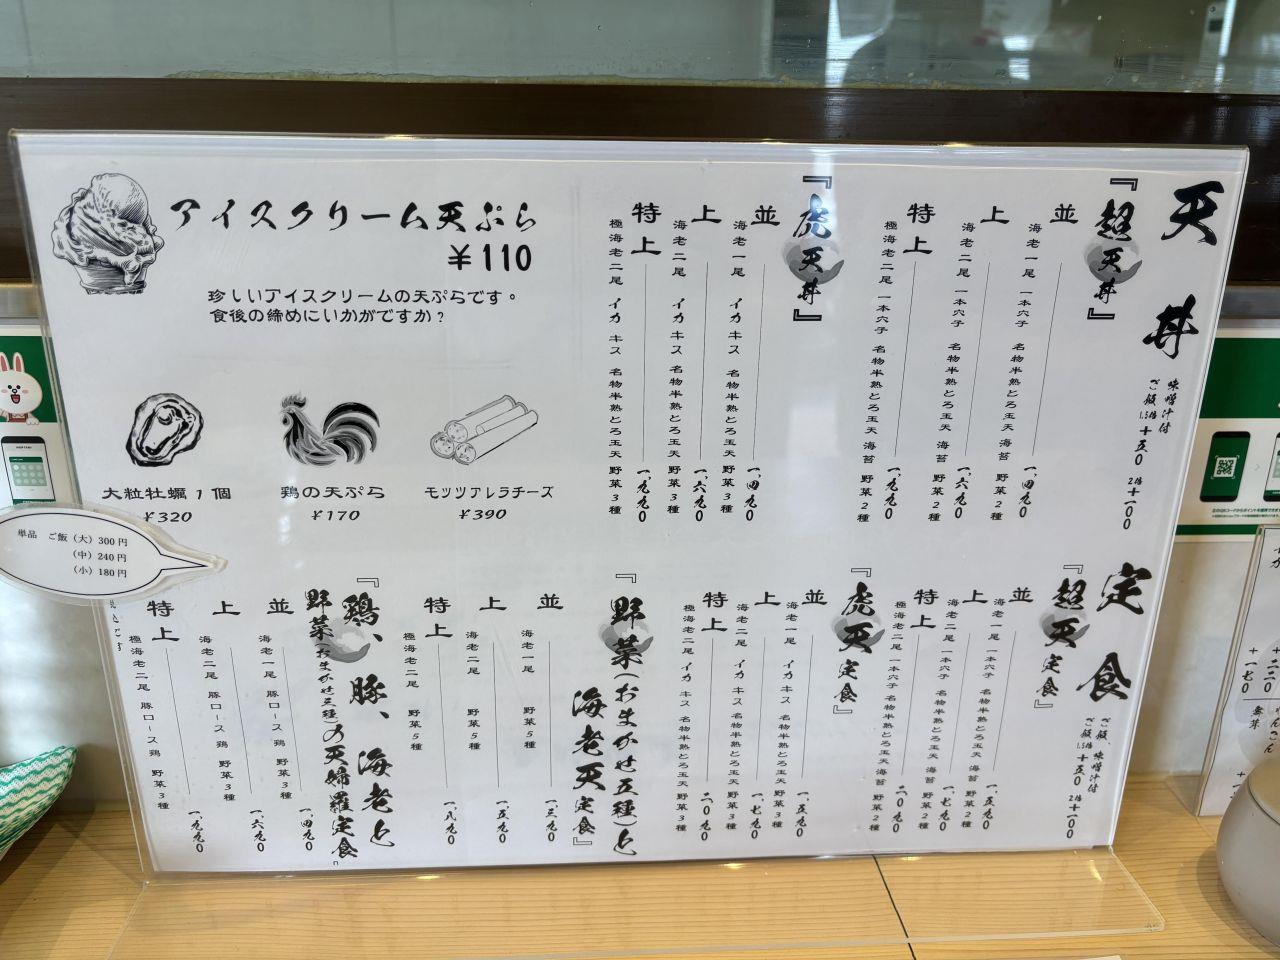 天丼
味噌汁付
ご飯1.5倍+五〇 2倍+一〇〇
『超天丼』
並
海老一尾 一本穴子 名物半熟とろ玉天 海苔 野菜2種
一、四九〇
上
海老二尾 一本穴子 名物半熟とろ玉天 海苔 野菜2種
一、六九〇
特上
極海老二尾 一本穴子 名物半熟とろ玉天 海苔 野菜2種
一、九九〇
『虎天丼』
並
海老一尾 イカ キス 名物半熟とろ玉天 野菜3種
一、四九〇
上
海老二尾 イカ キス 名物半熟とろ玉天 野菜3種
一、六九〇
特上
極海老二尾 イカ キス 名物半熟とろ玉天 野菜3種
一、九九〇
アイスクリーム天ぷら
¥110
珍しいアイスクリームの天ぷらです。
食後の締めにいかがですか?
大粒牡蠣1個
¥320
鶏の天ぷら
¥170
モッツアレラチーズ
¥390
定食
ご飯、味噌汁付
ご飯1.5倍+五〇 2倍+一〇〇
『超天定食』
並
海老一尾 一本穴子 名物半熟とろ玉天 海苔 野菜2種
一、五九〇
上
海老二尾 一本穴子 名物半熟とろ玉天 海苔 野菜2種
一、七九〇
特上
極海老二尾 一本穴子 名物半熟とろ玉天 海苔 野菜2種
二、〇九〇
『虎天定食』
並
海老一尾 イカ キス 名物半熟とろ玉天 野菜3種
一、五九〇
上
海老二尾 イカ キス 名物半熟とろ玉天 野菜3種
一、七九〇
特上
極海老二尾 イカ キス 名物半熟とろ玉天 野菜3種
二、〇九〇
『野菜(おまかせ五種)と
海老天定食』
並
海老一尾 野菜5種
一、三九〇
上
海老二尾 野菜5種
一、五九〇
特上
極海老二尾 野菜5種
一、八九〇
『鶏、豚、海老と
野菜(おまかせ三種)の天婦羅定食』
並
海老一尾 豚ロース 鶏 野菜3種
一、四九〇
上
海老二尾 豚ロース 鶏 野菜3種
一、六九〇
特上
極海老二尾 豚ロース 鶏 野菜3種
一、九九〇
単品 ご飯(大)300円
(中)240円
(小)180円